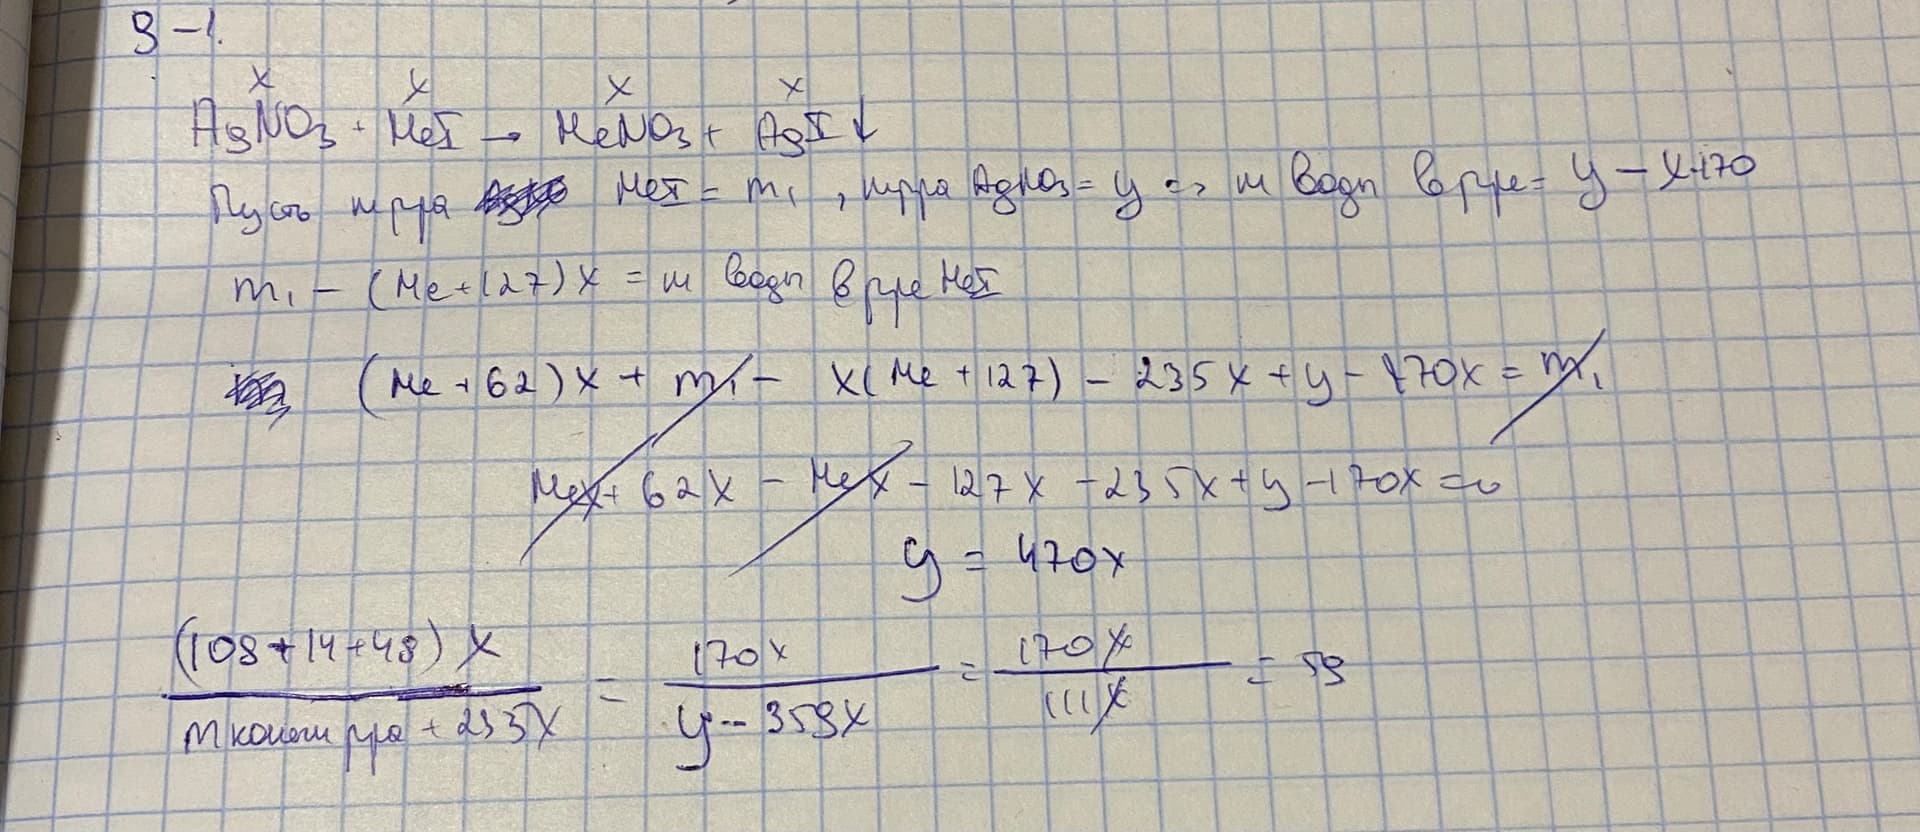 9-1.
x x x x
AgNO3 + MeI → MeNO3 + AgI↓
Пусть m р-ра MeI = m1, m р-ра AgNO3 = y => m воды в р-ре = y - x·170
m1 - (Me+127)x = m воды в р-ре MeI
(Me+62)x + m1 - x(Me+127) - 235x + y - 170x = m1
Mex + 62x - Mex - 127x - 235x + y - 170x = 0
y = 470x
(108+14+48)x / m конечн р-ра + 235x = 170x / y - 359x = 170x / 111x = 59